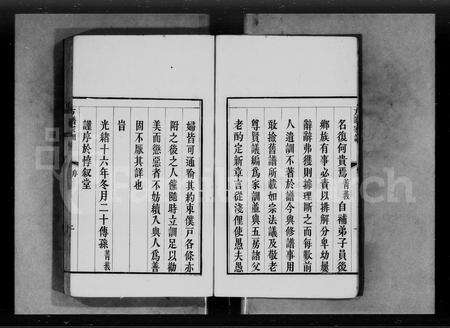 名復何貴焉菁莪自補弟子員後
鄉族有事必責以排解分卑幼屢
辭弗獲則據理斷之而每歎前
人遺訓不著於譜今與修譜事用
敢撿舊譜所載如宗法議及敬老
尊賢議編為家訓並與五房諸父
老酌定新章言從淺俚使愚夫愚
婦皆可通翰其約束僕戶各條亦
附之後之人儻隨時立訓足以勸
美而懲惡者不妨續入與人為善
固不厭其詳也
旹
光緒十六年冬月二十傳孫菁莪
謹序於惇叙堂